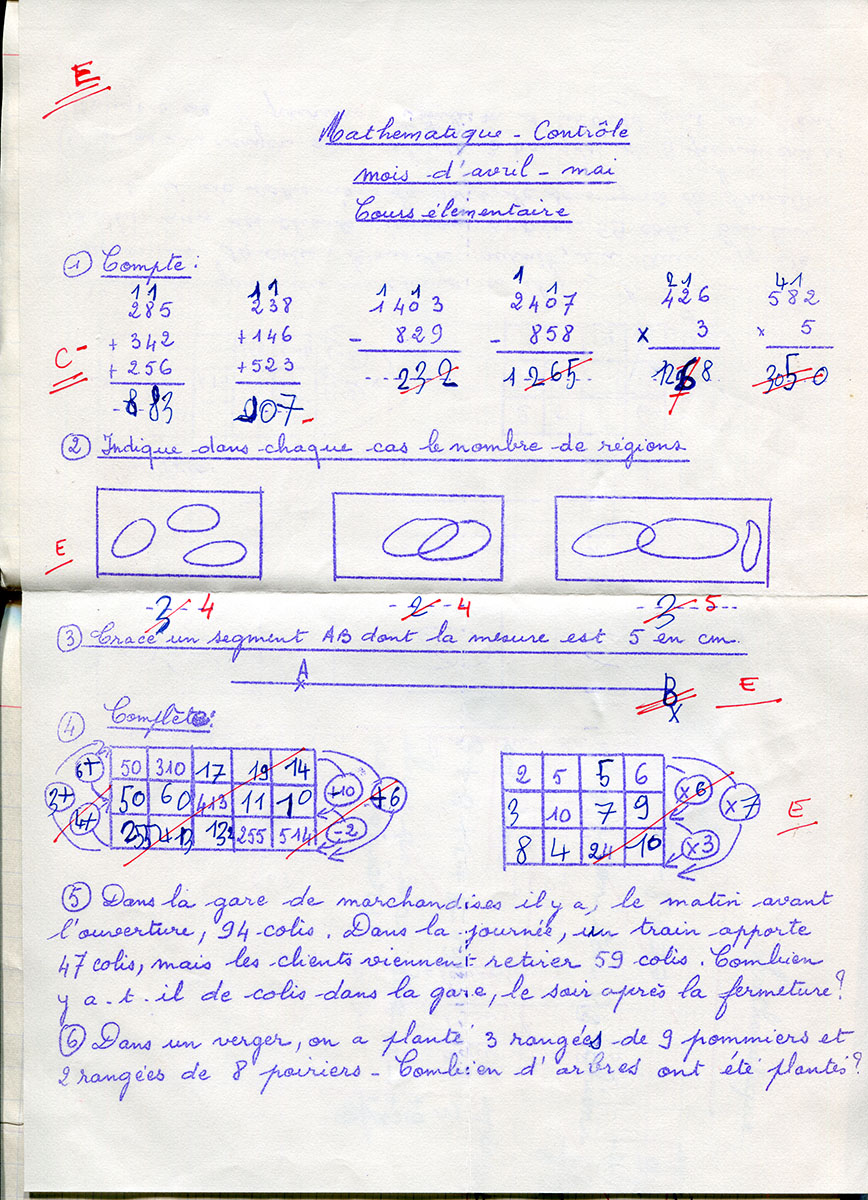 E
Mathématique - Contrôle
mois d'avril - mai
Cours élémentaire
① Compte:
11 11 1 1 1 1 21 41
285 238 1403 2407 426 582
+ 342 +146 - 829 - 858 x 3 x 5
+ 256 +523
C-
883 907 232 1265 1268 3050
② Indique dans chaque cas le nombre de régions
E
3 4 2 4 3 5
③ Trace un segment AB dont la mesure est 5 en cm.
A B E
x x
④ Complète:
50 310 17 19 14 2 5 5 6
50 60 413 11 10 3 10 7 9
255 514 8 4 24 10
6+ 3+ 4+ +10 +6 -2 x6 x7 x3 E
⑤ Dans la gare de marchandises il y a, le matin avant
l'ouverture, 94 colis. Dans la journée, un train apporte
47 colis, mais les clients viennent retirer 59 colis. Combien
y a-t-il de colis dans la gare, le soir après la fermeture?
⑥ Dans un verger, on a planté 3 rangées de 9 pommiers et
2 rangées de 8 poiriers - Combien d'arbres ont été plantés?